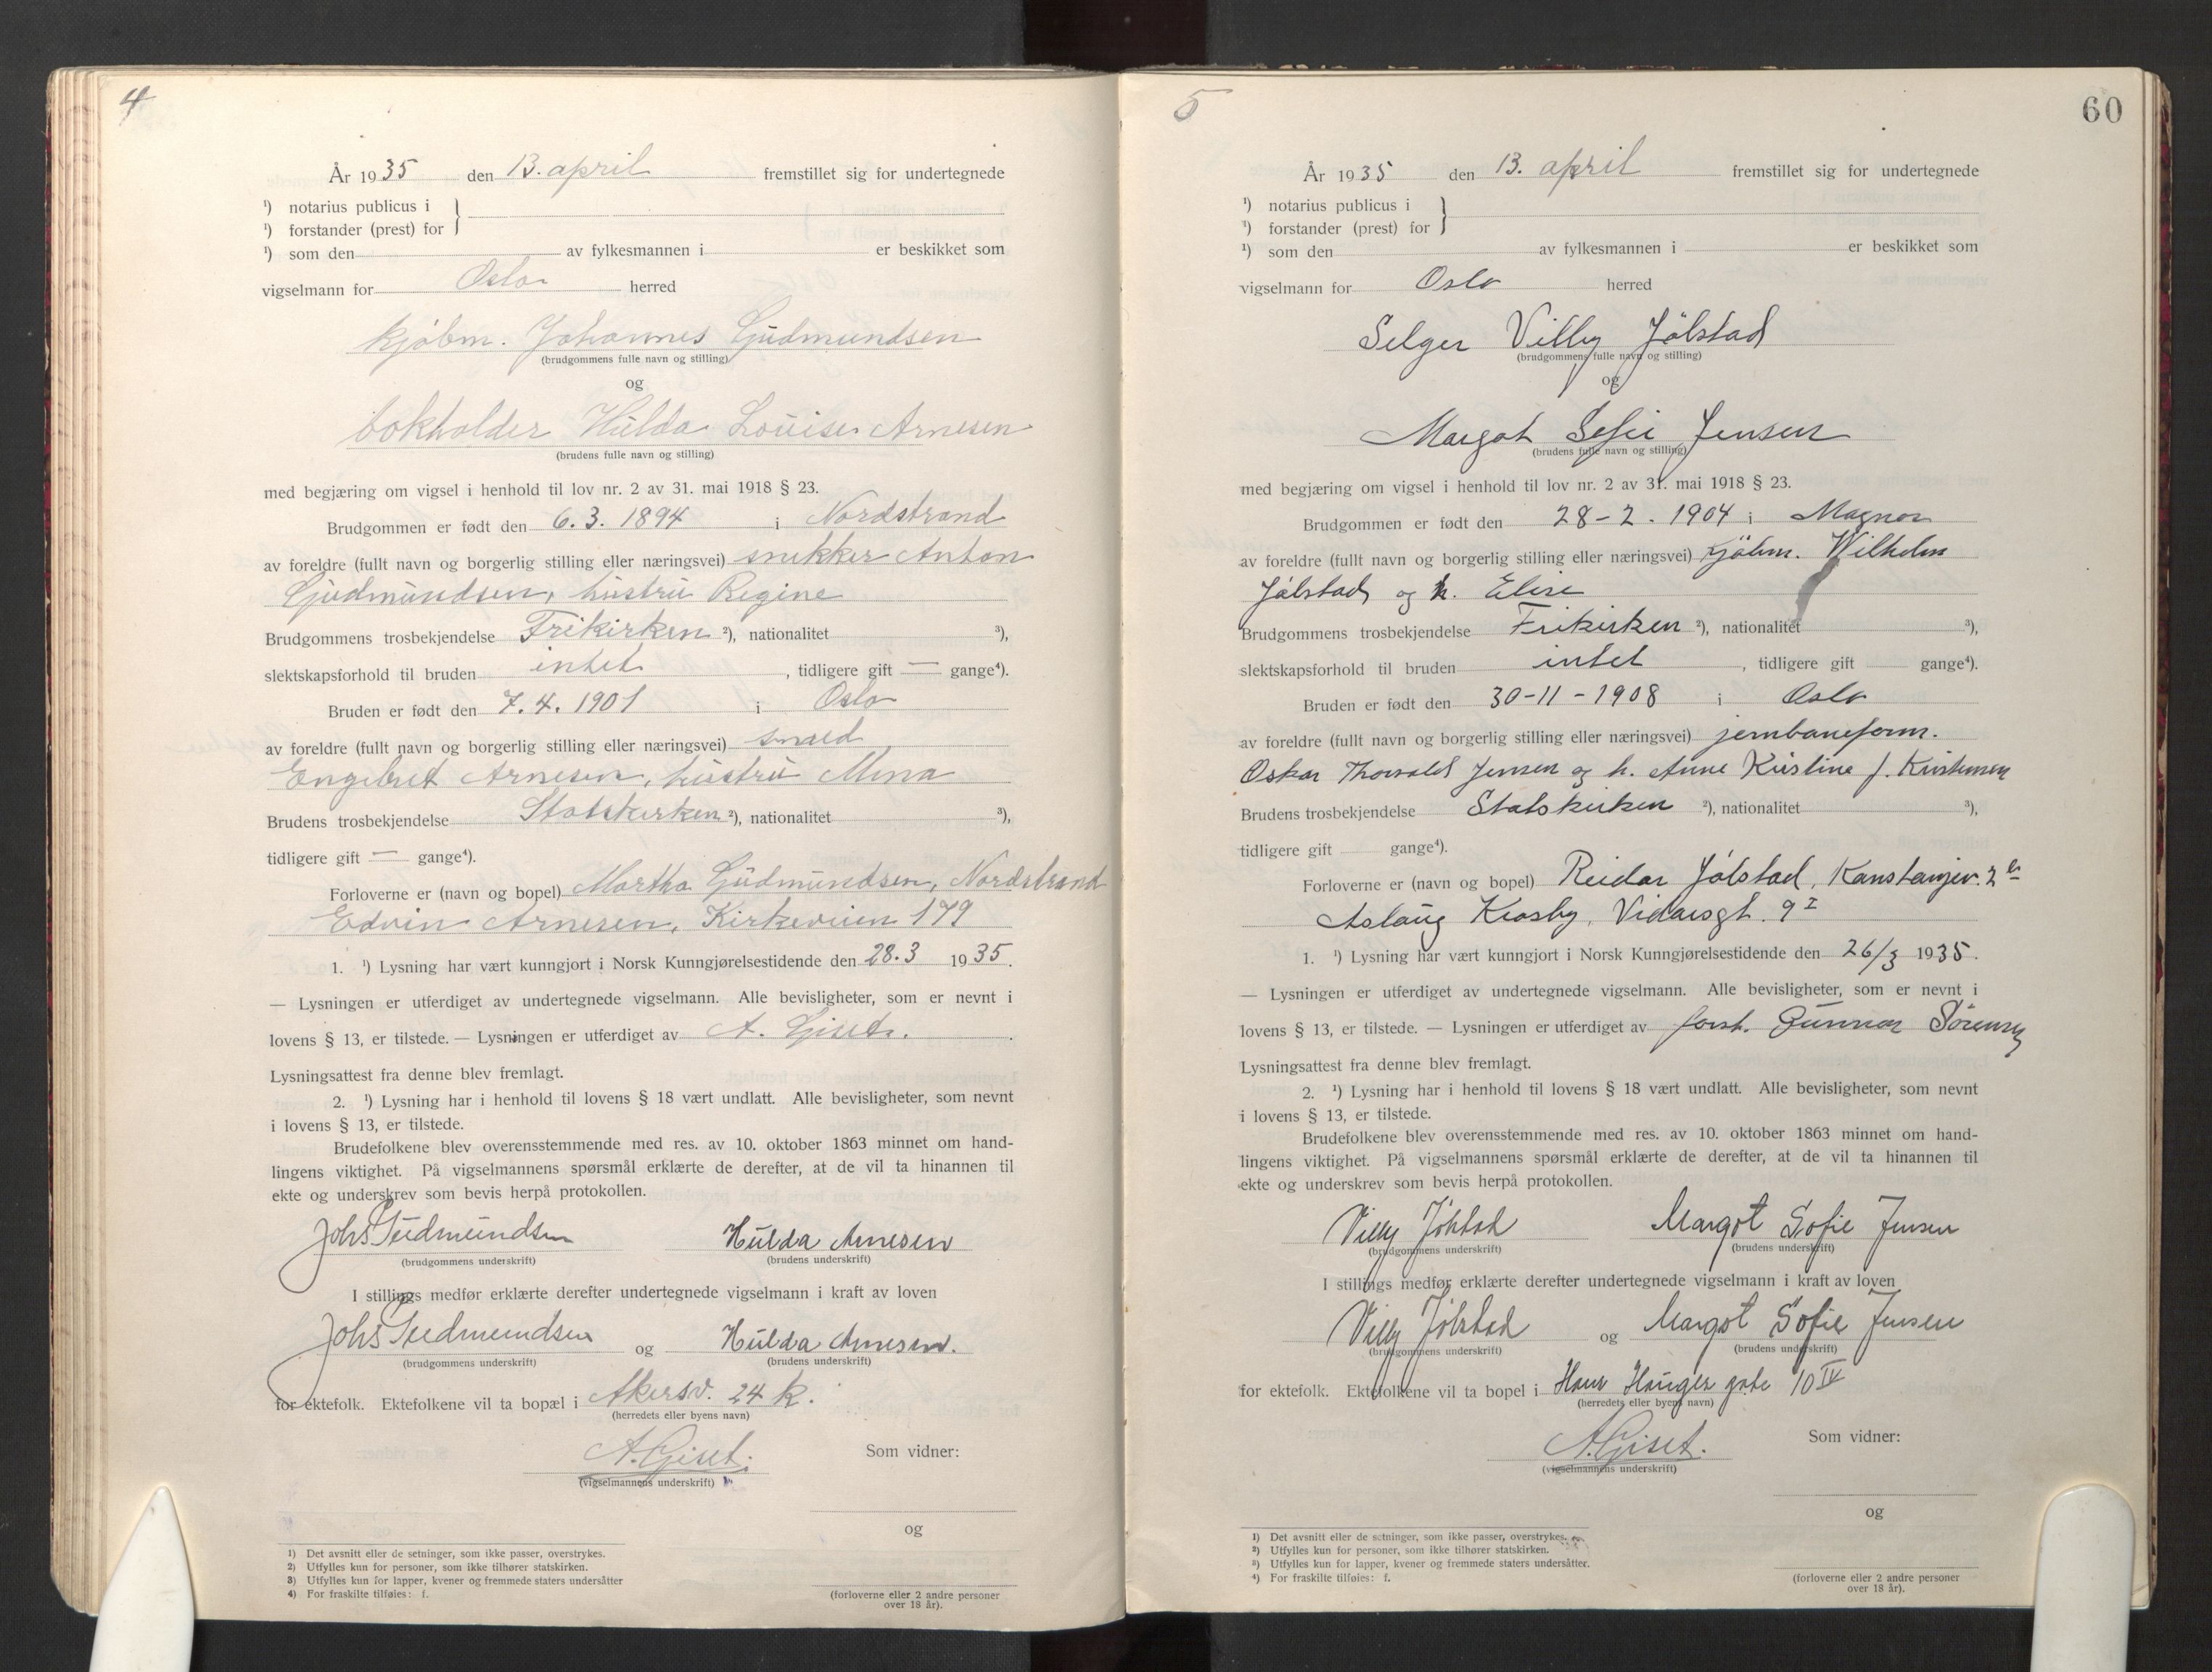 4
År 1935 den 13. april fremstillet sig for undertegnede
¹) notarius publicus i }
¹) forstander (prest) for }
¹) som den av fylkesmannen i er beskikket som
vigselmann for Oslo herred
kjøbm. Johannes Gudmundsen
(brudgommens fulle navn og stilling)
og
bokholder Hulda Louise Arnesen
(brudens fulle navn og stilling)
med begjæring om vigsel i henhold til lov nr. 2 av 31. mai 1918 § 23.
Brudgommen er født den 6.3. 1894 i Nordstrand
av foreldre (fullt navn og borgerlig stilling eller næringsvei) snekker Anton
Gudmundsen, hustru Regine
Brudgommens trosbekjendelse Frikirken ²), nationalitet ³),
slektskapsforhold til bruden intet, tidligere gift — gange⁴).
Bruden er født den 7.4. 1901 i Oslo
av foreldre (fullt navn og borgerlig stilling eller næringsvei) smed
Engebret Arnesen, hustru Mina
Brudens trosbekjendelse Statskirken ²), nationalitet ³),
tidligere gift — gange⁴).
Forloverne er (navn og bopel) Martha Gudmundsen, Nordstrand
Edvin Arnesen, Kirkeveien 179
1. ¹) Lysning har vært kunngjort i Norsk Kunngjørelsestidende den 28.3 1935.
— Lysningen er utferdiget av undertegnede vigselmann. Alle bevisligheter, som er nevnt i
lovens § 13, er tilstede. — Lysningen er utferdiget av A. Giset.
Lysningsattest fra denne blev fremlagt.
2. ¹) Lysning har i henhold til lovens § 18 vært undlatt. Alle bevisligheter, som nevnt
i lovens § 13, er tilstede.
Brudefolkene blev overensstemmende med res. av 10. oktober 1863 minnet om hand-
lingens viktighet. På vigselmannens spørsmål erklærte de derefter, at de vil ta hinannen til
ekte og underskrev som bevis herpå protokollen.
Johs Gudmundsen Hulda Arnesen
(brudgommens underskrift) (brudens underskrift)
I stillings medfør erklærte derefter undertegnede vigselmann i kraft av loven
Johs Gudmundsen og Hulda Arnesen.
(brudgommens underskrift) (brudens underskrift)
for ektefolk. Ektefolkene vil ta bopæl i Akersv. 24 k.
(herredets eller byens navn)
A. Giset. Som vidner:
(vigselmannens underskrift)
og
1) Det avsnitt eller de setninger, som ikke passer, overstrykes.
2) Utfylles kun for personer, som ikke tilhører statskirken.
3) Utfylles kun for lapper, kvener og fremmede staters undersåtter
4) For fraskilte tilføies: f.
(forloverne eller 2 andre personer
over 18 år).
5
60
År 1935 den 13. april fremstillet sig for undertegnede
¹) notarius publicus i }
¹) forstander (prest) for }
¹) som den av fylkesmannen i er beskikket som
vigselmann for Oslo herred
Selger Villy Jølstad
(brudgommens fulle navn og stilling)
og
Margot Sofie Jensen
(brudens fulle navn og stilling)
med begjæring om vigsel i henhold til lov nr. 2 av 31. mai 1918 § 23.
Brudgommen er født den 28-2. 1904 i Magnor
av foreldre (fullt navn og borgerlig stilling eller næringsvei) kjøbm. Wilhelm
Jølstad og h. Elise
Brudgommens trosbekjendelse Frikirken ²), nationalitet ³),
slektskapsforhold til bruden intet, tidligere gift gange⁴).
Bruden er født den 30-11-1908 i Oslo
av foreldre (fullt navn og borgerlig stilling eller næringsvei) jernbaneform.
Oskar Thorvald Jensen og h. Anne Kristine f. Kristensen
Brudens trosbekjendelse Statskirken ²), nationalitet ³),
tidligere gift gange⁴).
Forloverne er (navn og bopel) Reidar Jølstad,
Aslaug Krosby, Vidarsgt. 9 I
1. ¹) Lysning har vært kunngjort i Norsk Kunngjørelsestidende den 26/3 1935.
— Lysningen er utferdiget av undertegnede vigselmann. Alle bevisligheter, som er nevnt i
lovens § 13, er tilstede. — Lysningen er utferdiget av forst. Gunnar Sørensen
Lysningsattest fra denne blev fremlagt.
2. ¹) Lysning har i henhold til lovens § 18 vært undlatt. Alle bevisligheter, som nevnt
i lovens § 13, er tilstede.
Brudefolkene blev overensstemmende med res. av 10. oktober 1863 minnet om hand-
lingens viktighet. På vigselmannens spørsmål erklærte de derefter, at de vil ta hinannen til
ekte og underskrev som bevis herpå protokollen.
Villy Jølstad Margot Sofie Jensen
(brudgommens underskrift) (brudens underskrift)
I stillings medfør erklærte derefter undertegnede vigselmann i kraft av loven
Villy Jølstad og Margot Sofie Jensen
(brudgommens underskrift) (brudens underskrift)
for ektefolk. Ektefolkene vil ta bopel i Hans Hauges gate 10 IV
(herredets eller byens navn)
A. Giset. Som vidner:
(vigselmannens underskrift)
og
1) Det avsnitt eller de setninger, som ikke passer, overstrykes.
2) Utfylles kun for personer, som ikke tilhører statskirken.
3) Utfylles kun for lapper, kvener og fremmede staters undersåtter.
4) For fraskilte tilføies: f.
(forloverne eller 2 andre personer
over 18 år).